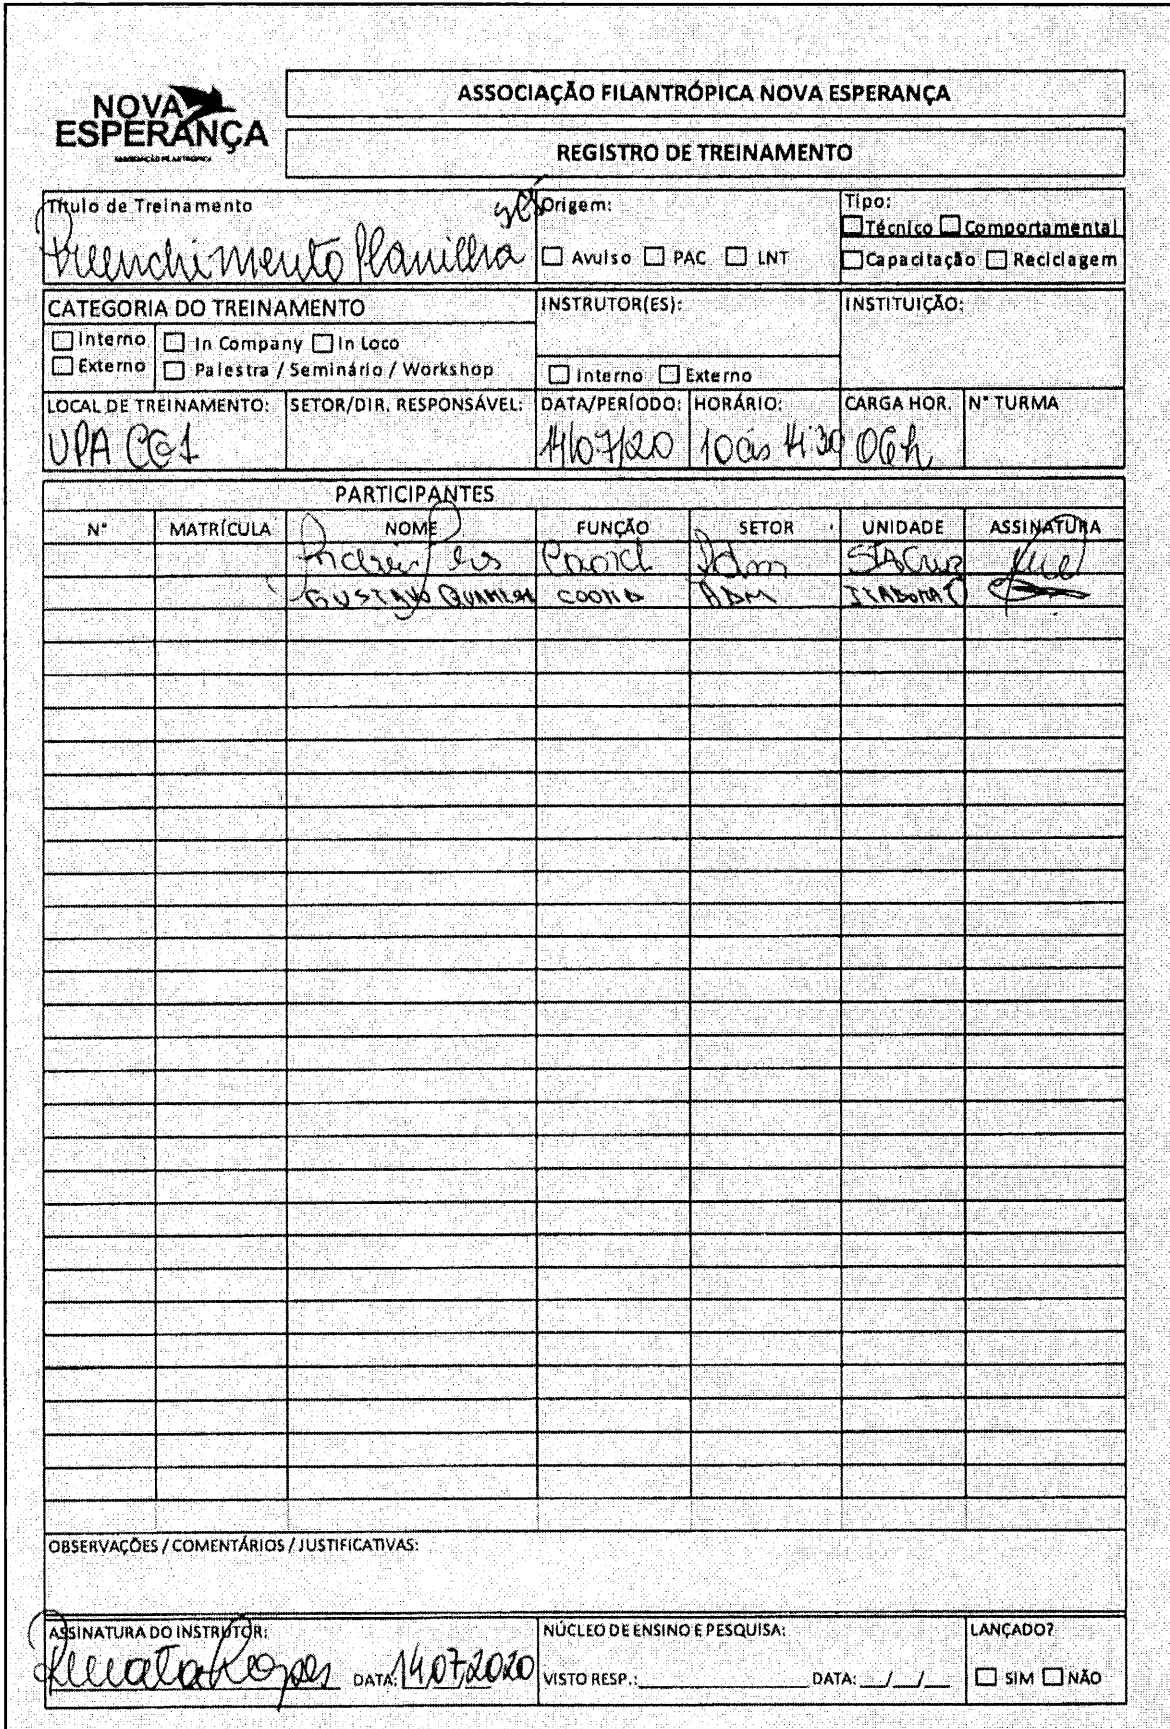 NOVA
ESPERANÇA
ASSOCIAÇÃO FILANTRÓPICA
ASSOCIAÇÃO FILANTRÓPICA NOVA ESPERANÇA
REGISTRO DE TREINAMENTO
Título de Treinamento
Preenchimento Planilha
Origem:
☐ Avulso ☐ PAC ☐ LNT
Tipo:
☐ Técnico ☐ Comportamental
☐ Capacitação ☐ Reciclagem
CATEGORIA DO TREINAMENTO
☐ Interno ☐ In Company ☐ In Loco
☐ Externo ☐ Palestra / Seminário / Workshop
INSTRUTOR(ES):
☐ Interno ☐ Externo
INSTITUIÇÃO:
LOCAL DE TREINAMENTO: SETOR/DIR. RESPONSÁVEL: DATA/PERÍODO: HORÁRIO: CARGA HOR. N° TURMA
UPA CG1 14/07/20 10 às 06h
PARTICIPANTES
N° MATRÍCULA NOME FUNÇÃO SETOR UNIDADE ASSINATURA
Coord Adm STA Cruz
GUSTAVO COORD ADM ITABORAÍ
OBSERVAÇÕES / COMENTÁRIOS / JUSTIFICATIVAS:
ASSINATURA DO INSTRUTOR:
Renata DATA: 14,07,2020
NÚCLEO DE ENSINO E PESQUISA:
VISTO RESP.: DATA: __/__/__
LANÇADO?
☐ SIM ☐ NÃO